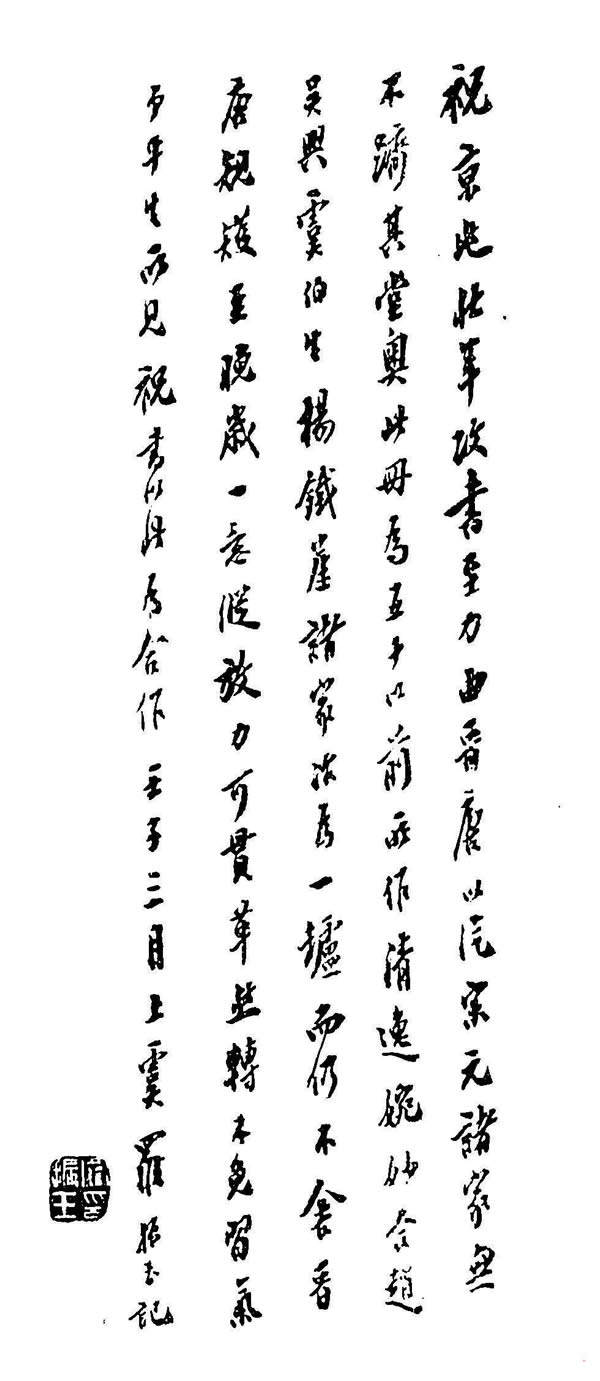 祝京兆壯年攻書至力由晉唐以迄宋元諸家無
不躋其堂奧此冊為五十以前所作清逸婉妙合趙
吳興虞伯生楊鐵崖諸家冶為一鑪而仍不舍晉
唐規矱至晚歲一意縱放力可貫革然轉不免習氣
予平生所見祝書以此為合作 壬子三月上虞羅振玉記
印振玉